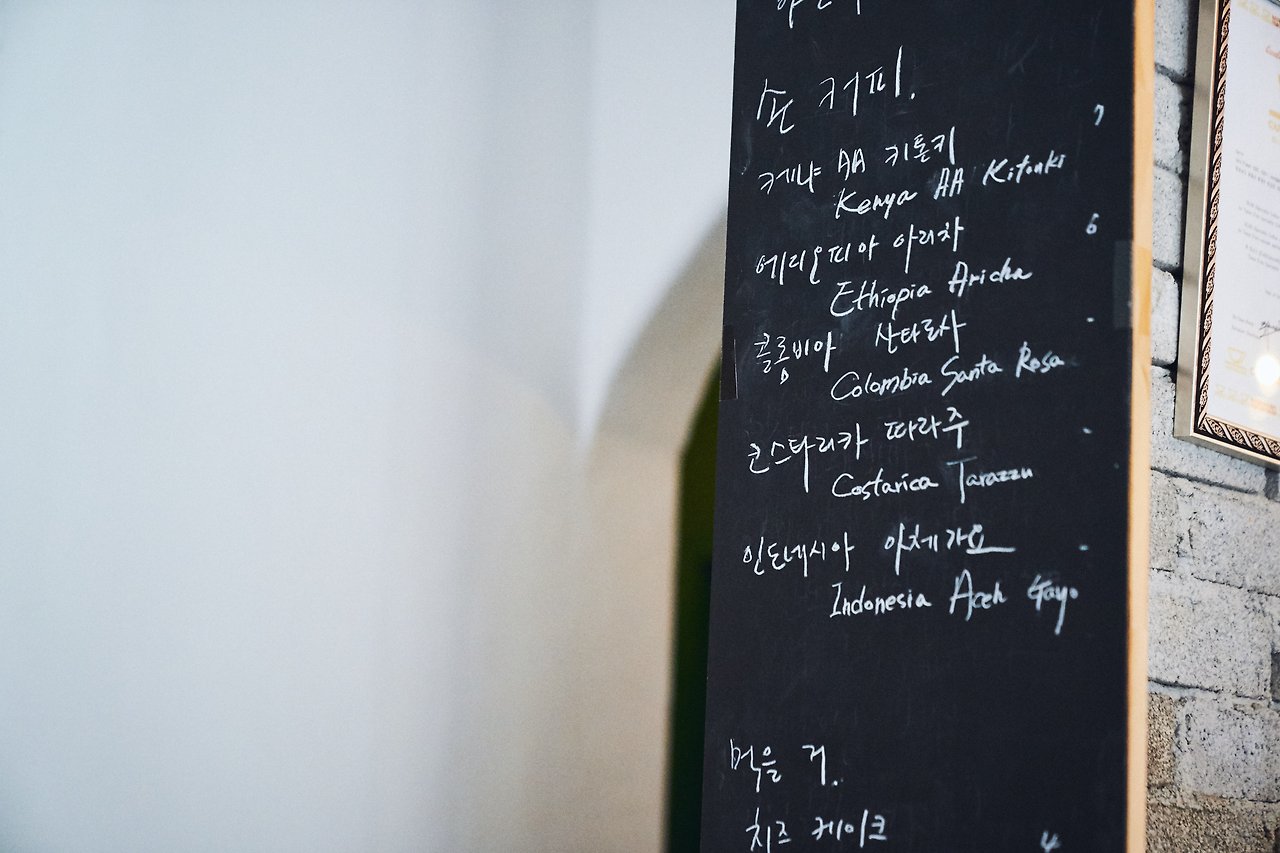 손 커피.
케냐 AA 키톤키 7
Kenya AA Kitonki
에티오피아 아리차 6
Ethiopia Aricha
콜롬비아 산타로사 -
Colombia Santa Rosa
코스타리카 따라주 -
Costarica Tarazzu
인도네시아 아체 가요 -
Indonesia Aceh Gayo
먹을 거.
치즈 케이크 4